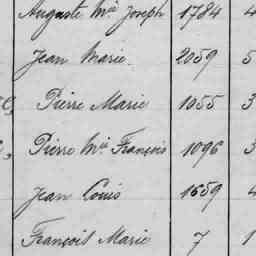 Auguste Mie Joseph 1784 4
Jean Marie. 2059 5
Pierre Marie 1055 3
Pierre Mie François 1096 3
Jean Louis 1659 4
François Marie 7 1